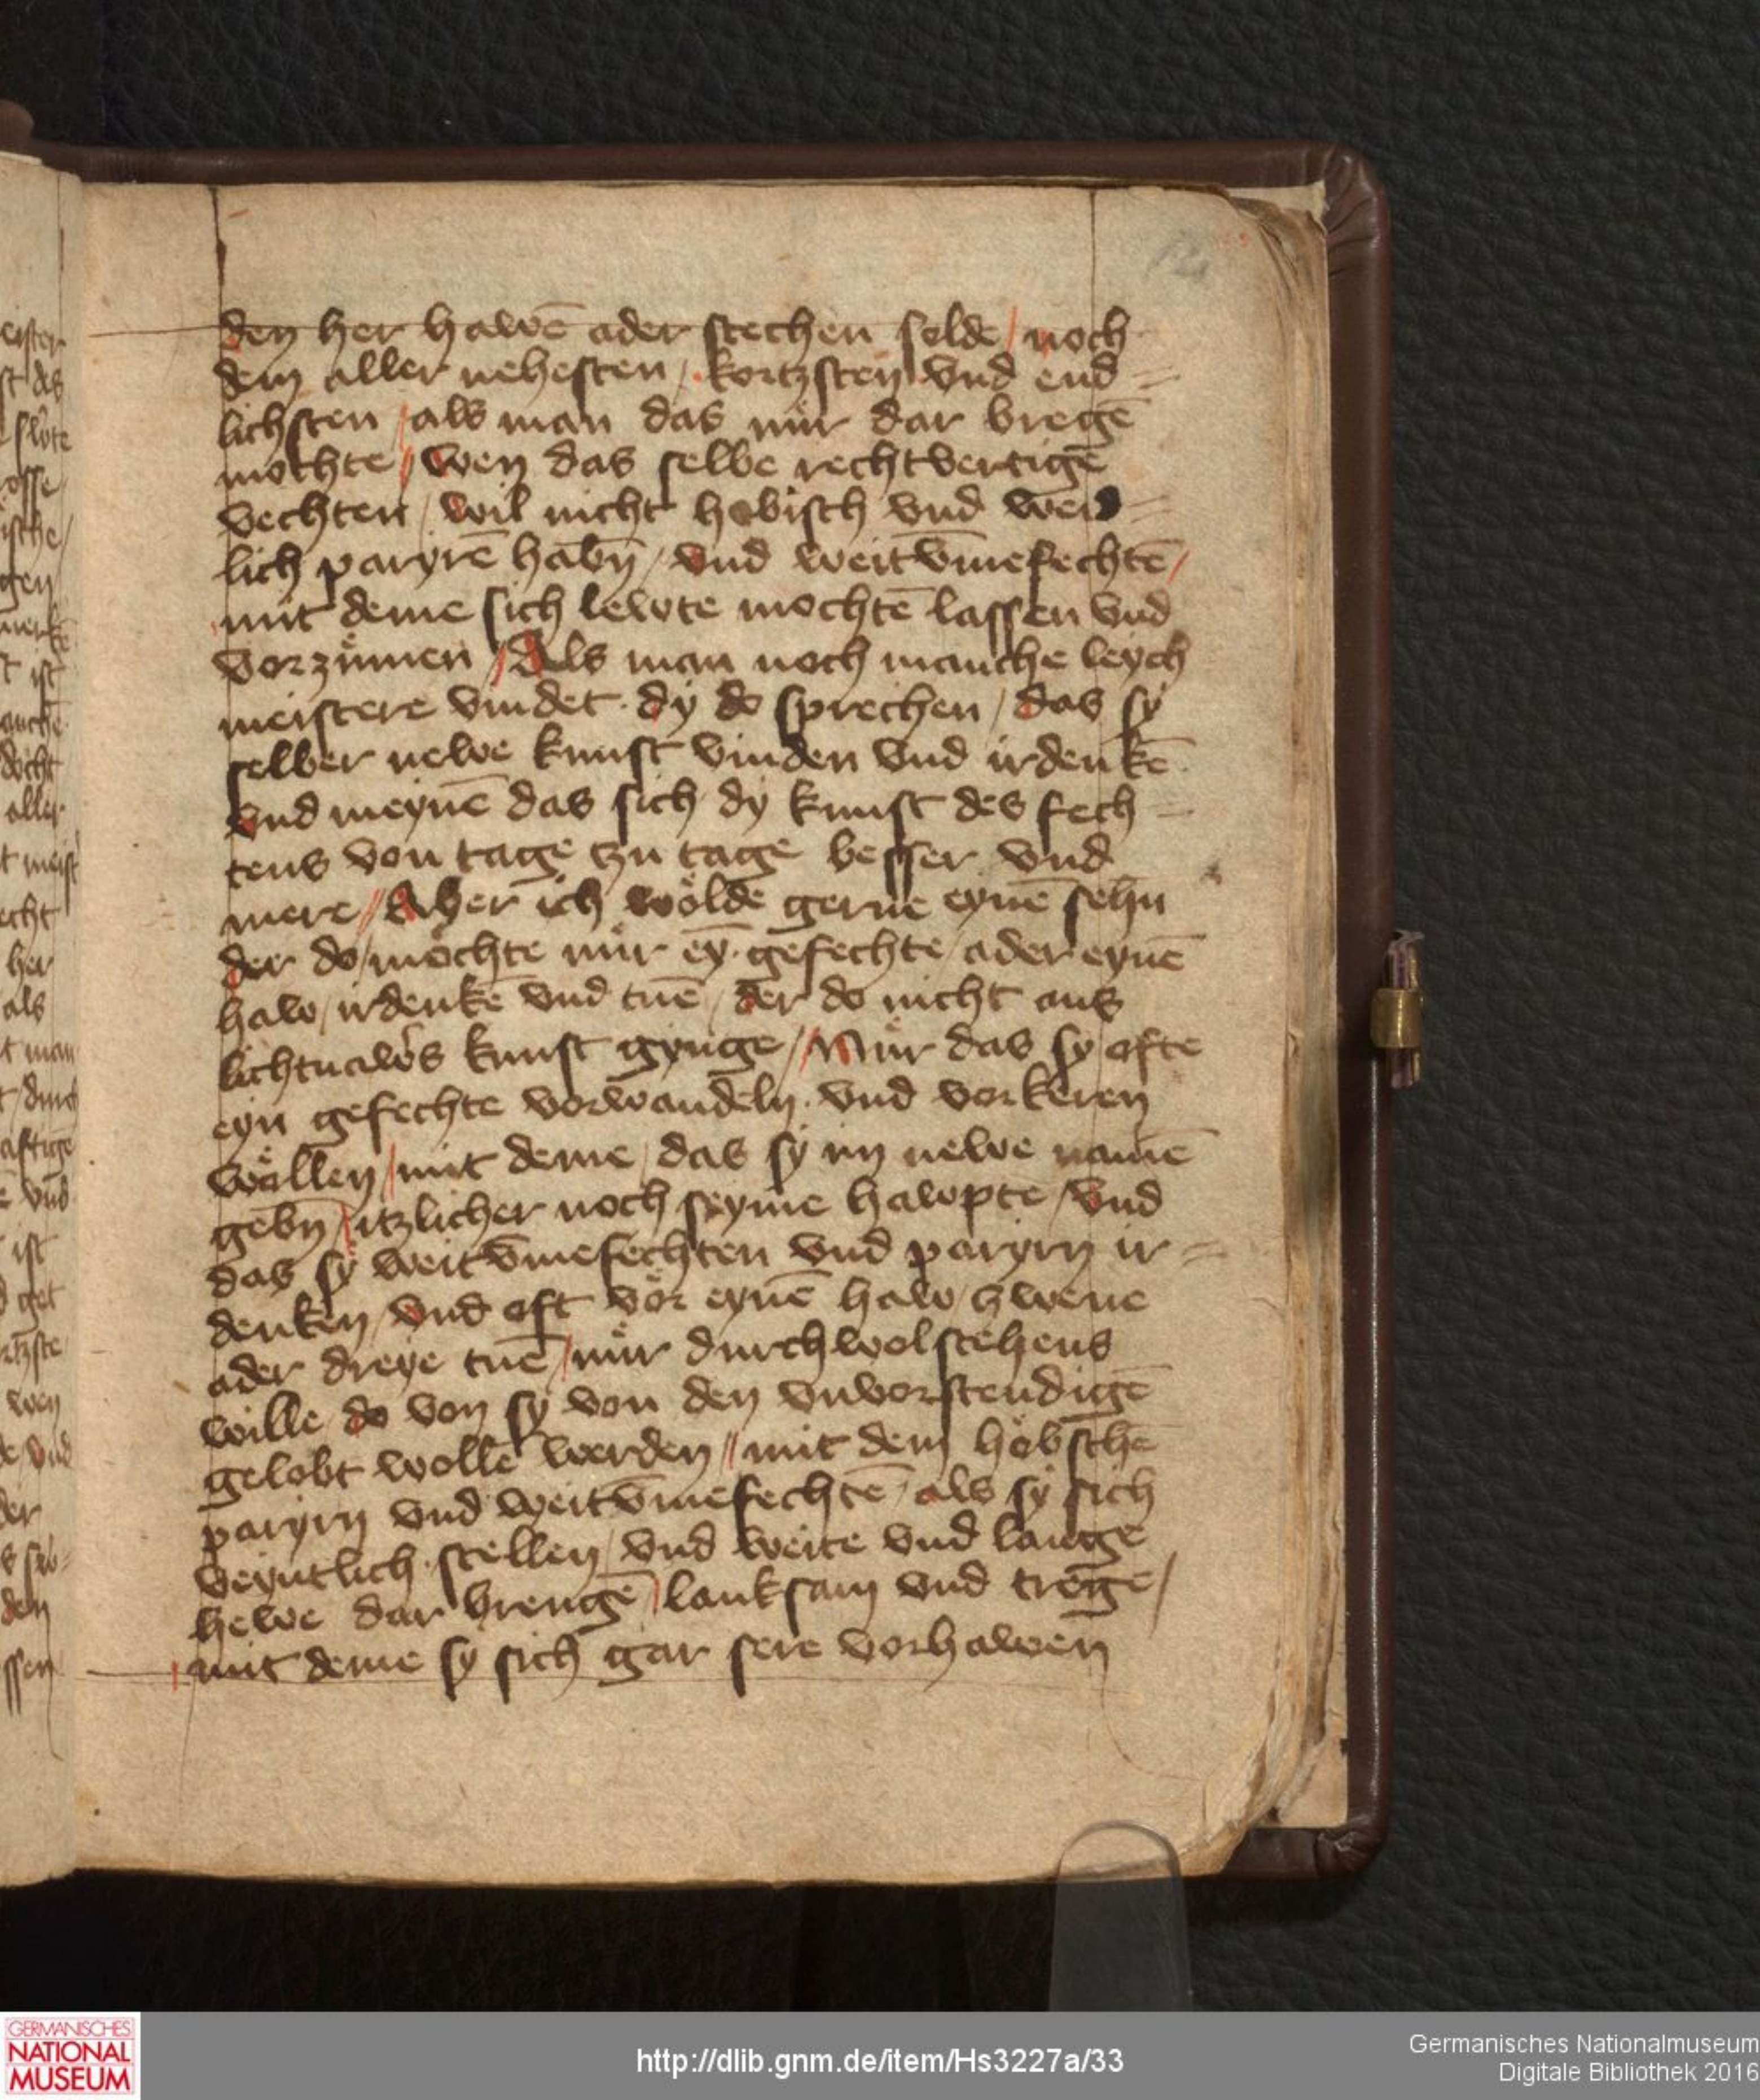 den her hawē ader stechen solde / noch
dem aller nehesten / kortzsten vnd end=
lichsten / als man das nür dar bregē
mochte / wen das selbe rechtvertigē
vechten / wil nicht hobisch vnd weid=
lich paryrē habn̄ / vnd weitvm̄efechtē /
mit deme sich lewte mochtē lassen vnd
vorzümen / Als man noch manche leych
meistere vindet dy do sprechen / das sy
selber newe kunst vinden vnd irdenkē
vnd meynē das sich dy kunst des fech=
tens von tage zu tage besser vnd
mere // Aber ich wölde gerne eynē sehn
der do möchte nür eȳ gefechte / ader eynē
haw / irdenkē vnd tuē / der do nicht aus
lichtnawers kunst gynge / Nür das sy ofte
eyn gefechte vorwandeln vnd vorkeren
wöllen / mit deme / das sy im newe namē
gebn̄ / itzlicher noch seyme hawpte / vnd
das sy weitvm̄efechten vnd paryrn ir=
denken / vnd oft vör eynē haw / zwene
ader dreye tuē / nür durch wolstehens
wille / do von sy von den vnvorstendigē
gelobt wollē werden // mit dem höbschē
paryrn vnd weitvm̄efechtē / als sy sich
veyntlich stellen / vnd weite vnd lange
hewe dar brengē / lanksam vnd trege /
mit deme sy sich gar sere vorhawen
GERMANISCHES
NATIONAL
MUSEUM
http://dlib.gnm.de/item/Hs3227a/33
Germanisches Nationalmuseum
Digitale Bibliothek 2016